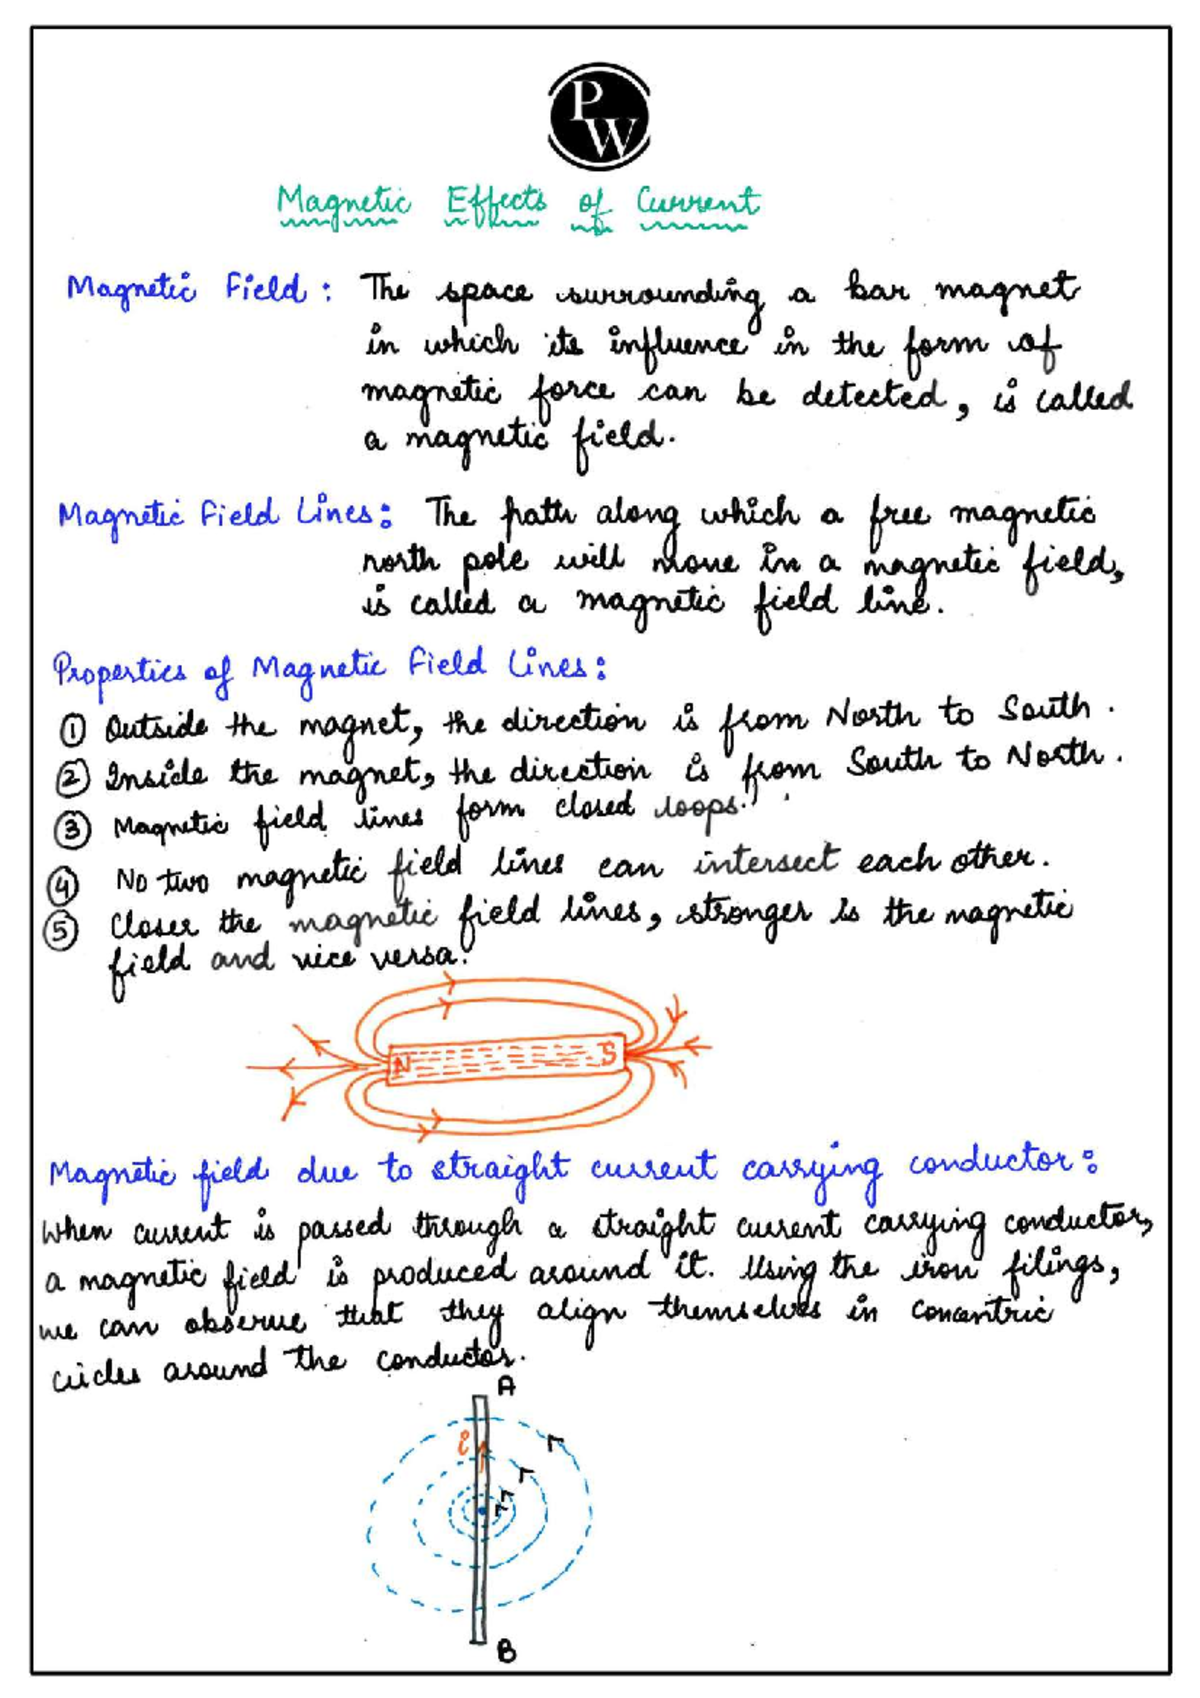 PW
Magnetic Effects of Current
Magnetic Field : The space surrounding a bar magnet
in which its influence in the form of
magnetic force can be detected, is called
a magnetic field.
Magnetic Field Lines: The path along which a free magnetic
north pole will move in a magnetic field,
is called a magnetic field line.
Properties of Magnetic Field Lines:
① Outside the magnet, the direction is from North to South.
② Inside the magnet, the direction is from South to North.
③ Magnetic field lines form closed loops.
④ No two magnetic field lines can intersect each other.
⑤ Closer the magnetic field lines, stronger is the magnetic
field and vice versa.
N S
Magnetic field due to straight current carrying conductor:
When current is passed through a straight current carrying conductor,
a magnetic field is produced around it. Using the iron filings,
we can observe that they align themselves in concentric
circles around the conductor.
A
i
B